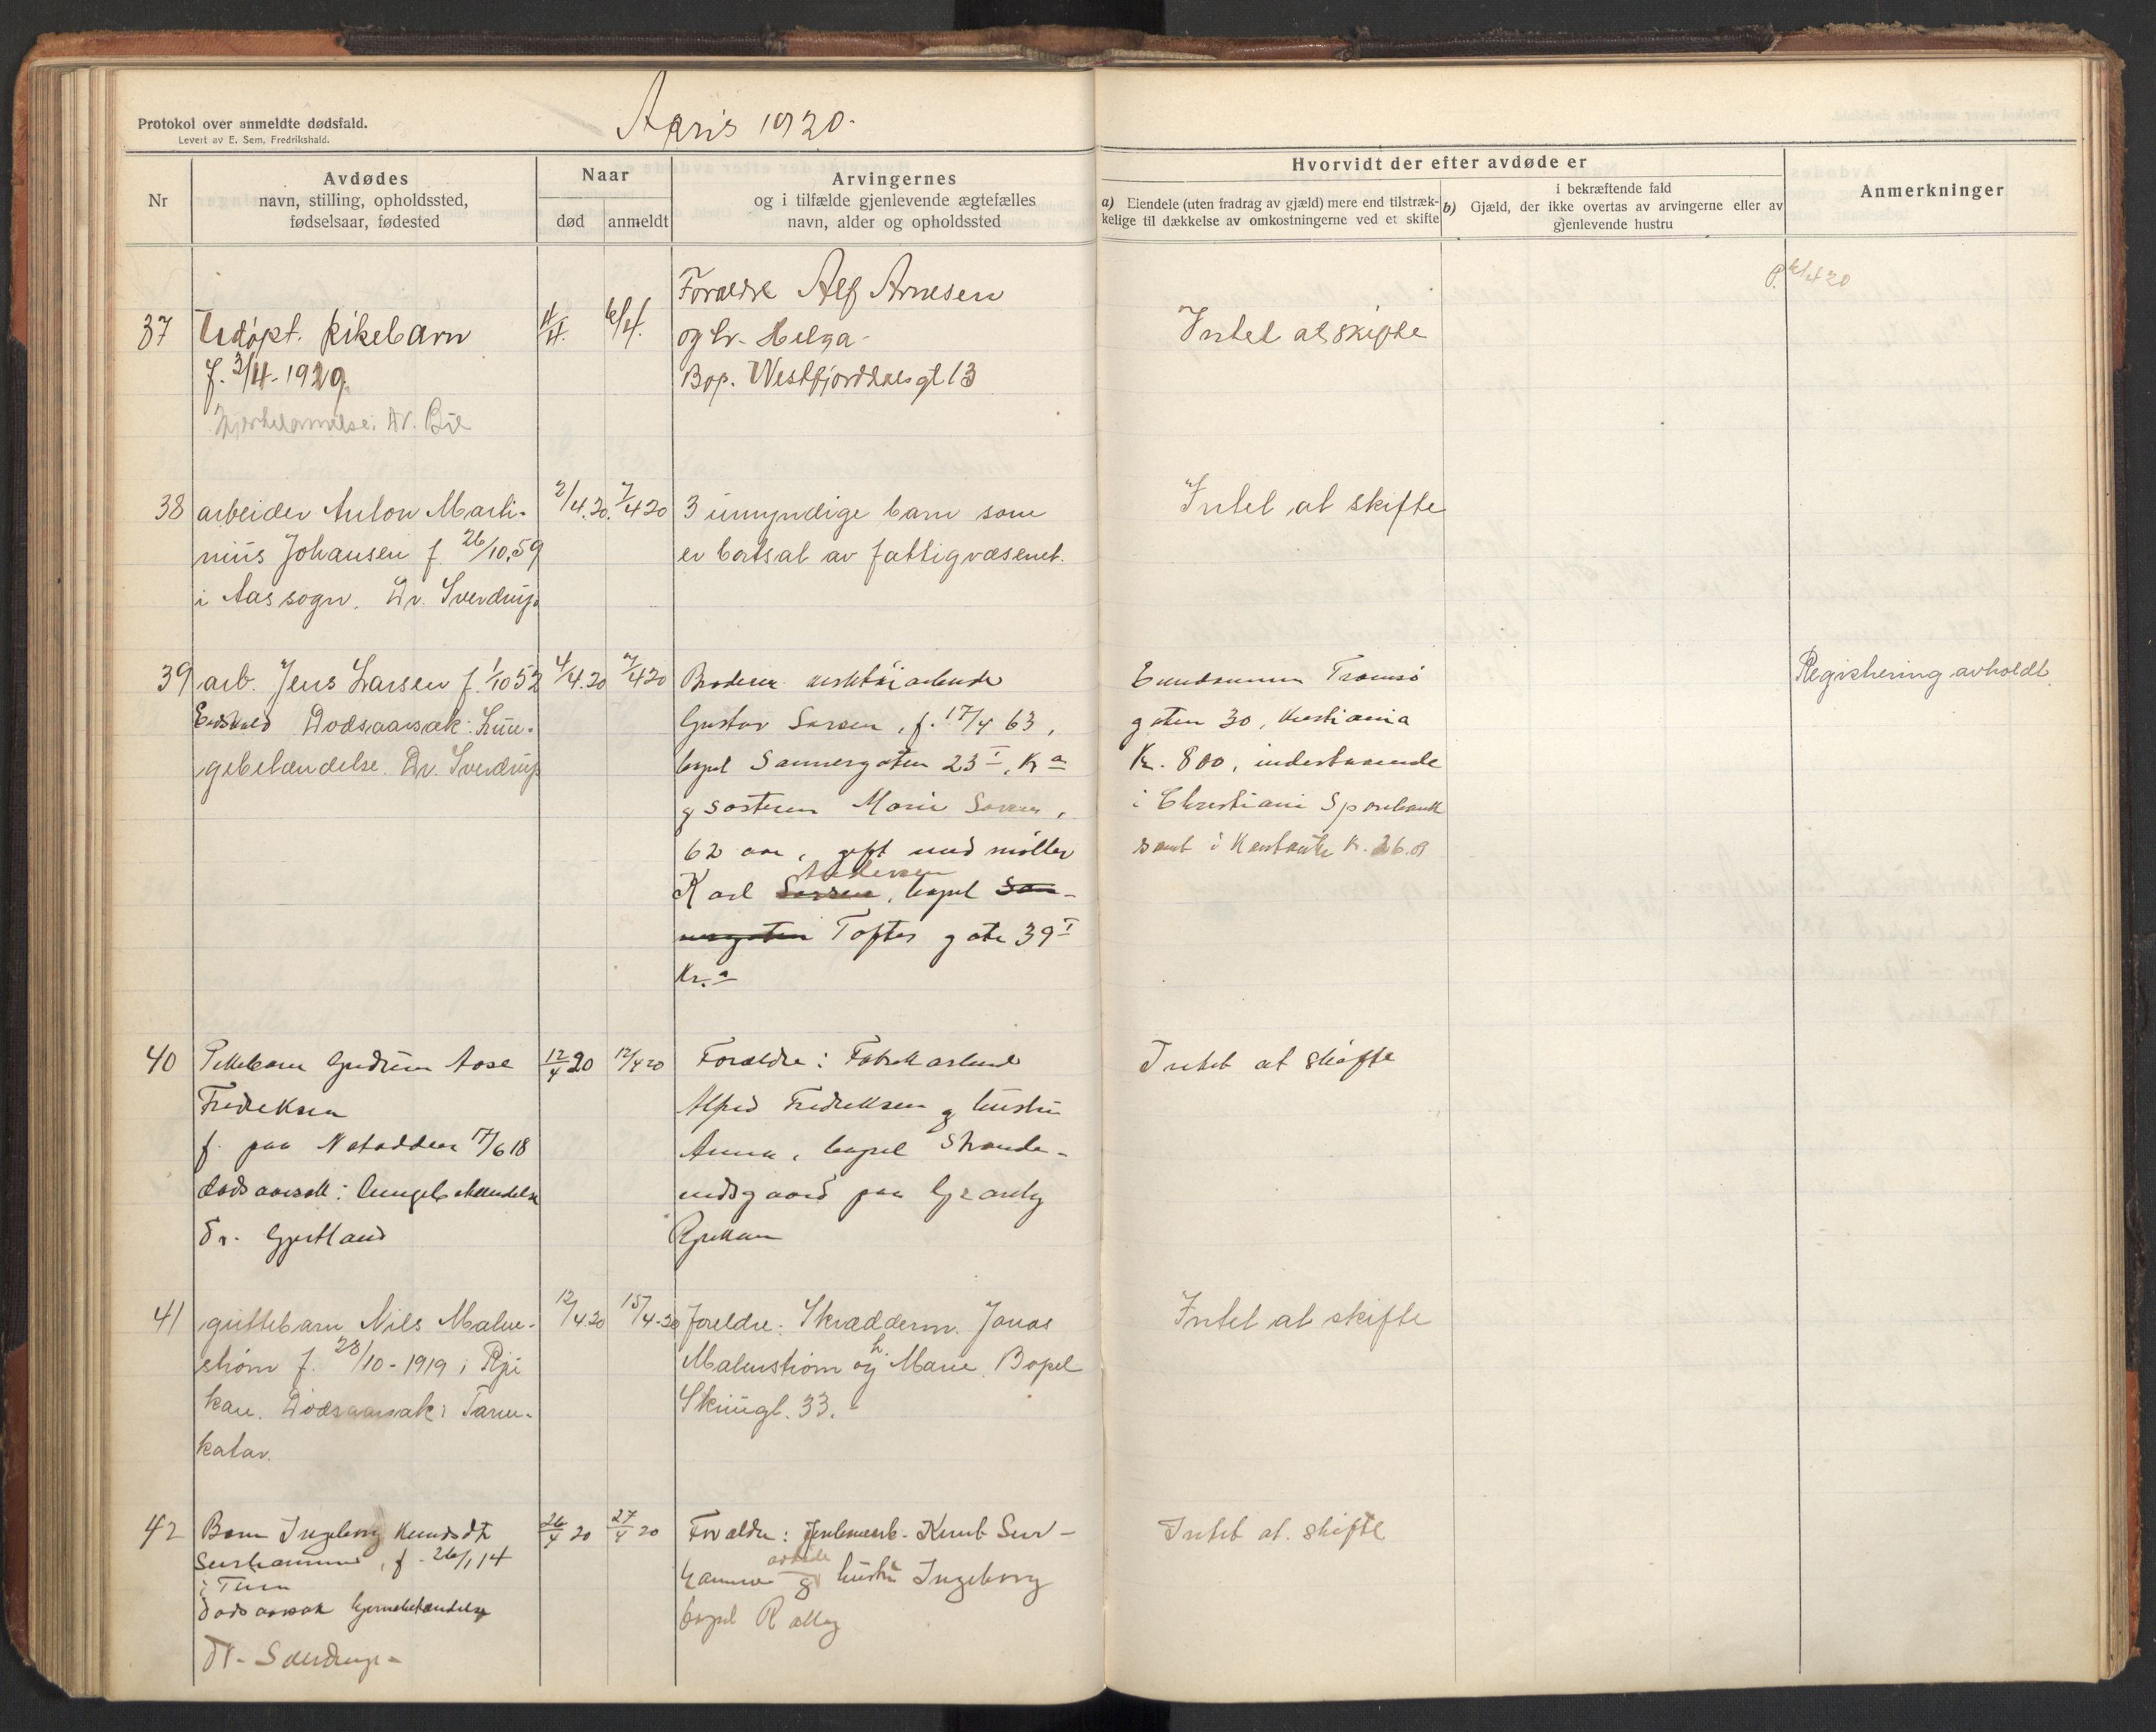 Protokol over anmeldte dødsfald.
Levert av E. Sem, Fredrikshald.
April 1920.
Nr
Avdødes
navn, stilling, opholdssted,
fødselsaar, fødested
Naar
død
anmeldt
Arvingernes
og i tilfælde gjenlevende ægtefælles
navn, alder og opholdssted
Hvorvidt der efter avdøde er
a) Eiendele (uten fradrag av gjæld) mere end tilstræk-
kelige til dækkelse av omkostningerne ved et skifte
i bekræftende fald
b) Gjæld, der ikke overtas av arvingerne eller av
gjenlevende hustru
Anmerkninger
P. 6/4 20
37
Udøpt. pikebarn
f. 3/4-1920.
Dr.
4/4.
6/4.
Forældre Alf Arnesen
og h. Helga
Bop. Westfjorddalsgt 13
Intet at skifte
38
arbeider Anton Marti-
nius Johansen f. 26/10.59
i Aas sogn. Dr. Sverdrup
2/4.20.
7/4 20
3 umyndige barn som
er bortsat av fattigvæsenet.
Intet at skifte
39
arb. Jens Larsen f. 1/10 52
Eidsvold Dødsaarsak: Lun-
gebetændelse. Dr. Sverdrup
4/4.20
7/4 20
Broderen
Gustav Larsen, f. 17/4 63,
bopel Sannergaten 23 I, Kr.a
og søsteren Marie Larsen,
62 aar, gift med møller
Andersen
Karl Larsen, bopel San-
nergaten Toftes gate 39 I
Kr.a
Eiendommen Tromsø
gaten 30, Kristiania
Kr. 800, indestaaende
i Christiania Sparebank
samt i Kontanter kr. 26.08
Registrering avholdt.
40
Pikebarn Gudrun Aase
Fredriksen
f. paa Notodden 17/6 18
dødsaarsak: lungebetændelse
Dr. Gjestland
12/4 20
12/4 20
Forældre: Fabrikarbeid
Alfred Fredriksen og hustru
Anna, bopel Strande-
Rjukan
Intet at skifte
41
guttebarn Nils Malm-
strøm f. 28/10-1919 i Rju
kan. Dødsaarsak: Tarm-
katar.
12/4.20
15/4.20
Foreldre: Skrædderm. Jonas
Malmstrøm og h. Marie. Bopel
Skriugt. 33.
Intet at skifte
42
Barn Ingeborg Knudsdtr
f. 26/1 14
i Tinn
Dødsaarsak hjernebetændelse
Dr. Sverdrup
26/4 20
27/4 20
Forældre: Knut Sur-
arbeide
og hustru Ingeborg
bopel
Intet at skifte